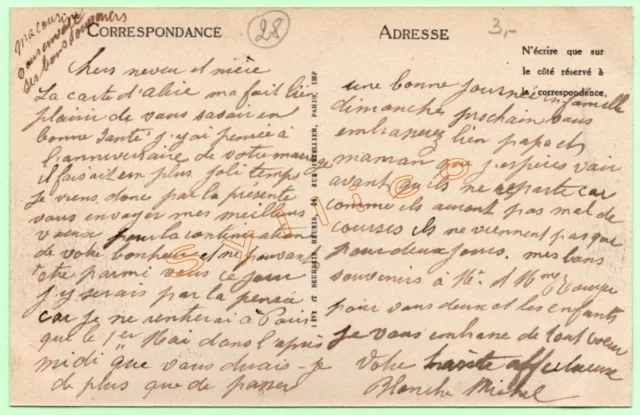 Ma cousine
vous envoie
ses bons souvenirs
CORRESPONDANCE
28
ADRESSE
3,-
N'écrire que sur
le côté réservé à
la correspondance.
Chers neveu et nièce
La carte d'Alice ma fait bien
plaisir de vous savoir en
bonne santé j'y ai pensée à
l'anniversaire de votre mariage
il faisait en plus joli temps
je viens donc par la présente
vous envoyer mes meilleurs
voeux pour la continuation
de votre bonheur et ne pouvant
être parmi vous ce jour
j'y serais par la pensée
car je ne rentrerai à Paris
que le 1er Mai dans l'après
midi que vous dirais-je
de plus que de passer
PARIS, IMP
une bonne journée en famille
dimanche prochain vous
embrasserez bien papa et
maman que j'espères voir
avant qu'ils ne reparte car
comme ils auront pas mal de
courses ils ne viennent pas que
pour deux jours. mes bons
souvenirs à Mr. et Mme
pour vous deux et les enfants
je vous embrasse de tout coeur
Votre tante affectueuse
Blanche Michel